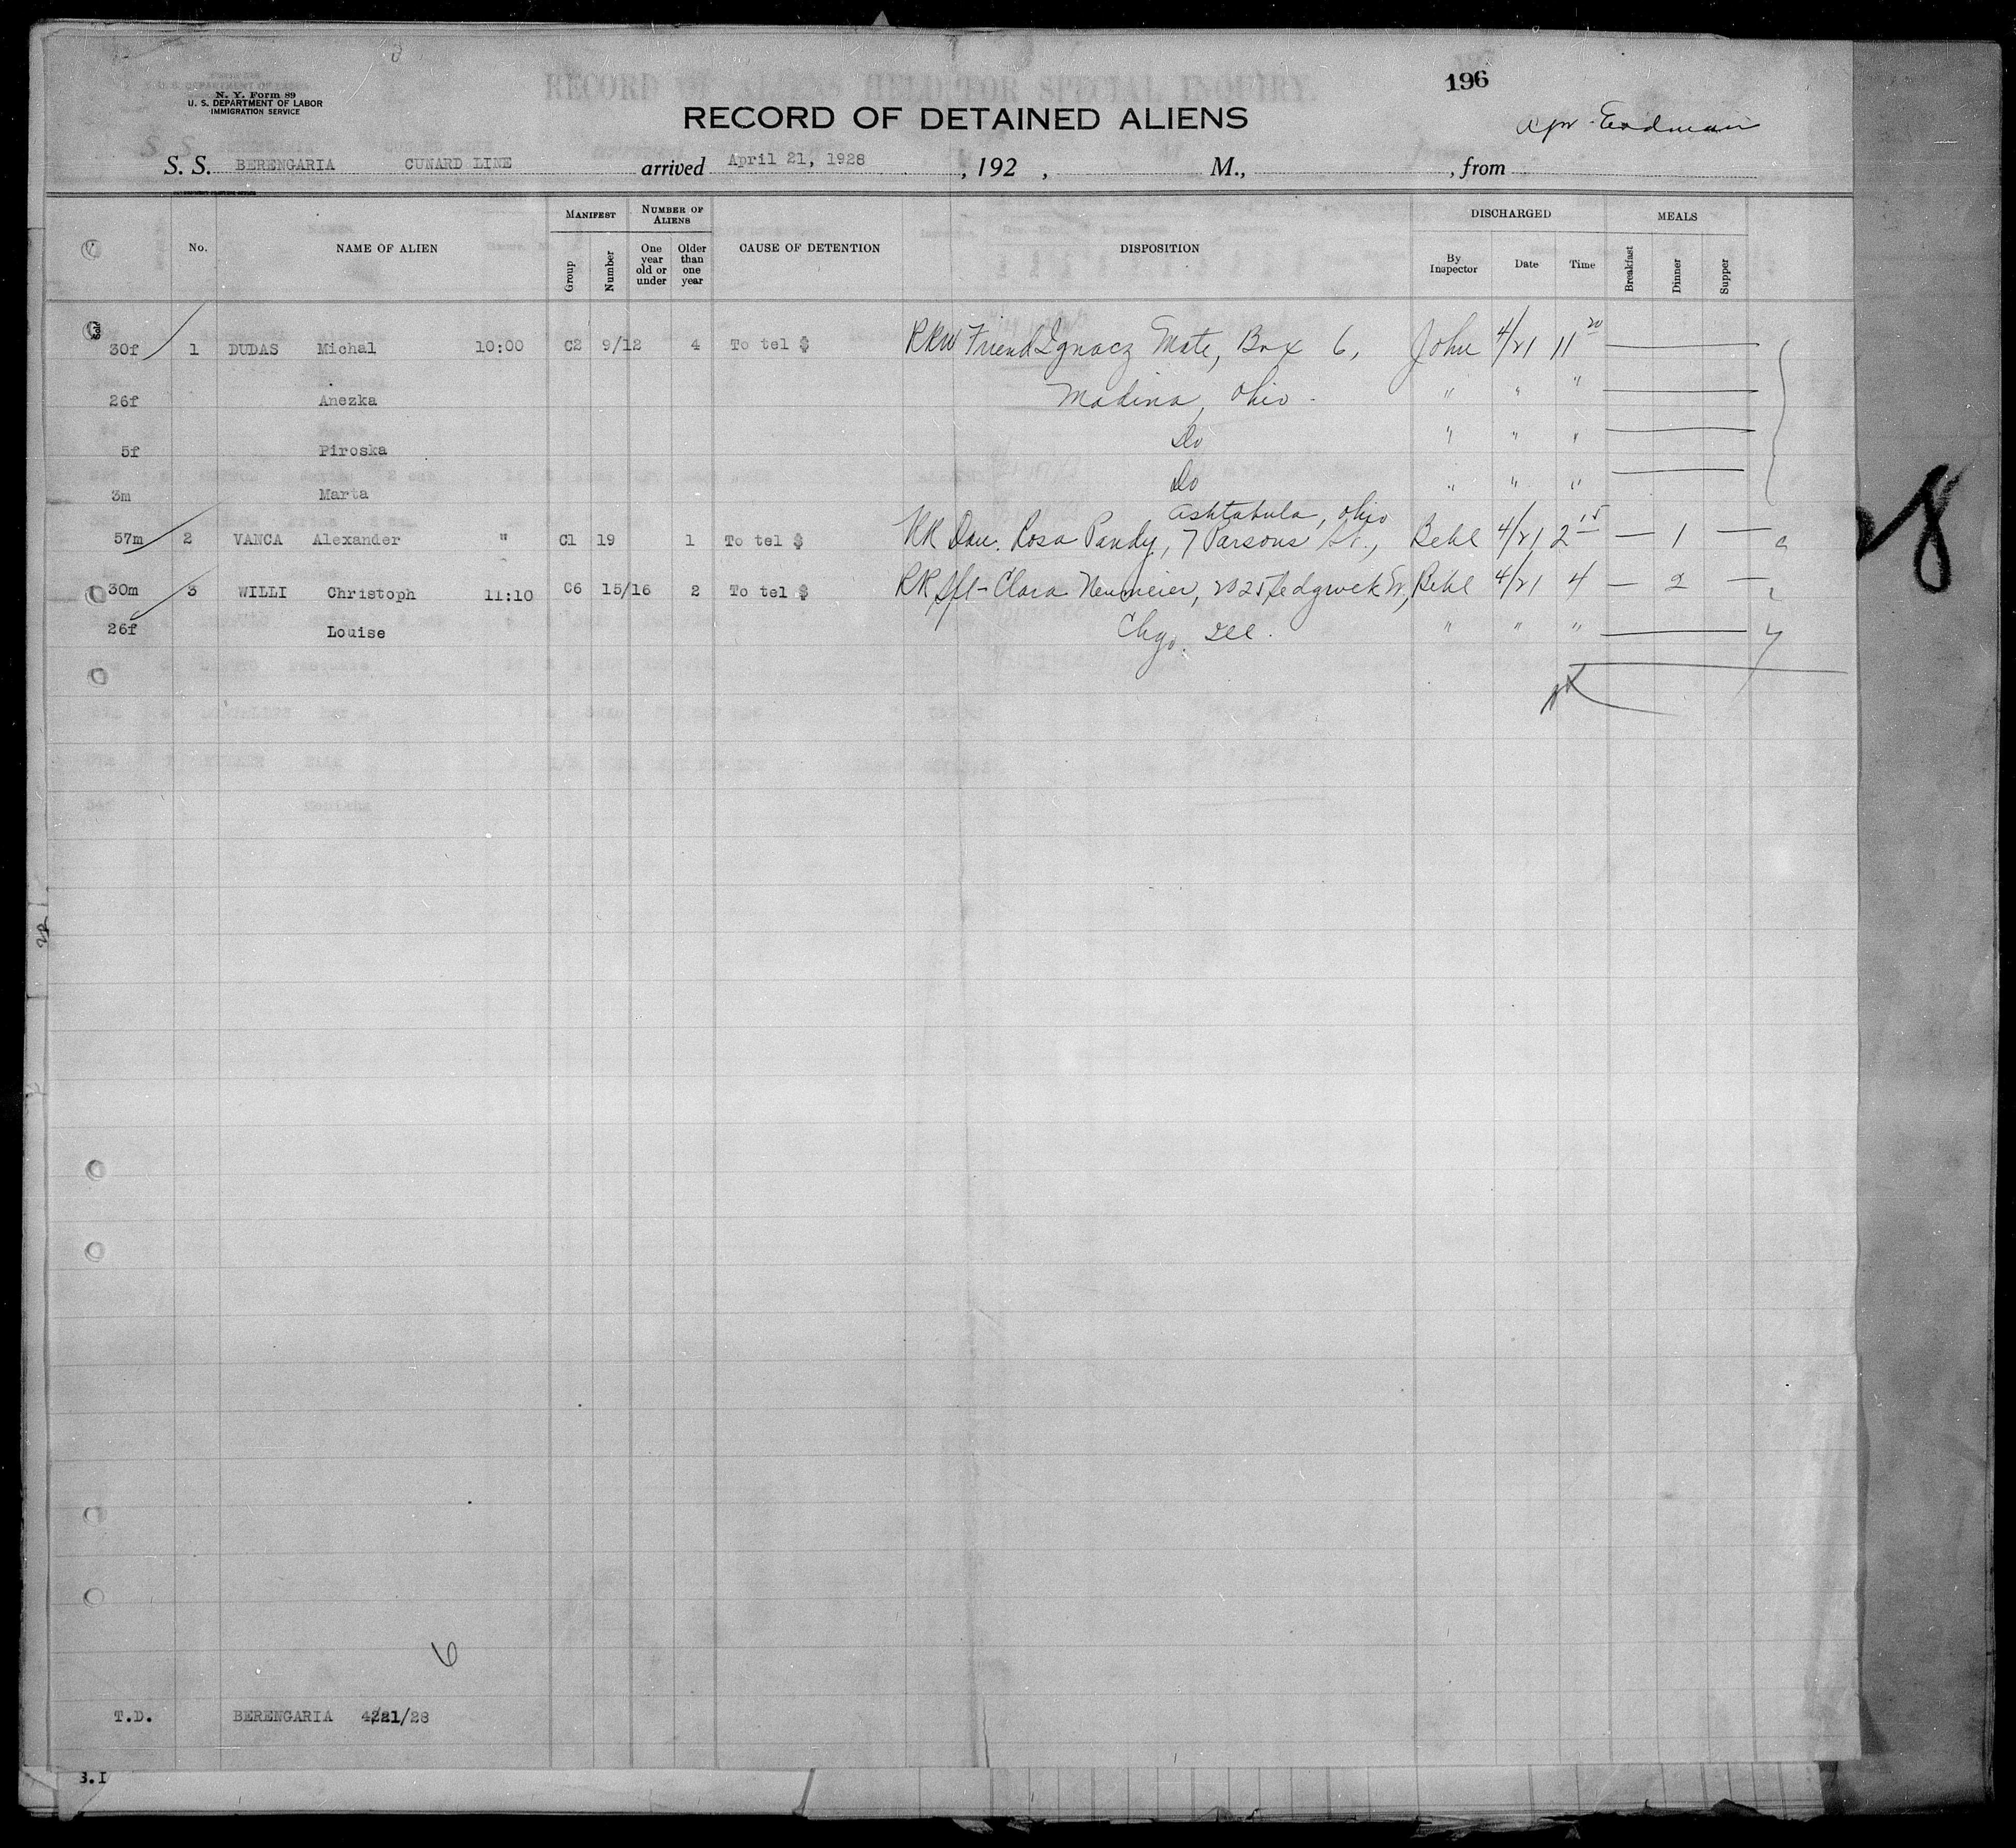 196
N. Y. Form 89
U. S. DEPARTMENT OF LABOR
IMMIGRATION SERVICE
RECORD OF DETAINED ALIENS
S. S. BERENGARIA CUNARD LINE arrived April 21, 1928 , 192 , M., , from
No. NAME OF ALIEN MANIFEST Group Number NUMBER OF ALIENS One year old or under Older than one year CAUSE OF DETENTION DISPOSITION DISCHARGED By Inspector Date Time MEALS Breakfast Dinner Supper
30f 1 DUDAS Michal 10:00 C2 9/12 4 To tel $ Friend Ignacz Mate, Box 6, John 4/21 11 20
26f Anezka Madina, Ohio. " " "
5f Piroska Do " " "
3m Marta Do " " "
Ashtabula, Ohio
57m 2 VANCA Alexander " C1 19 1 To tel $ RR Dau. Rosa Pandy, 7 Parsons St., Behl 4/21 2 15 — 1 —
30m 3 WILLI Christoph 11:10 C6 15/16 2 To tel $ RR Clara Neumeier, 2025 Sedgwick St., Behl 4/21 4 — 2 —
26f Louise Chgo. Ill. " " "
6
T.D. BERENGARIA 4/21/28
S.I